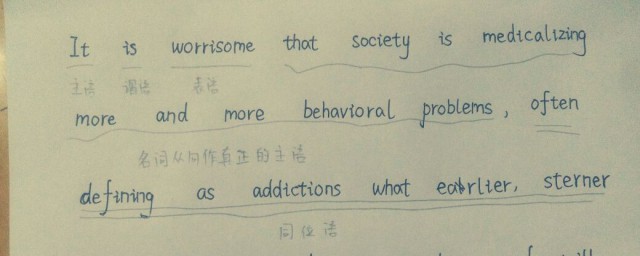 It is worrisome that society is medicalizing
主语 谓语 表语
more and more behavioral problems, often
名词从句作真正的主语
defining as addictions what earlier, sterner
同位语